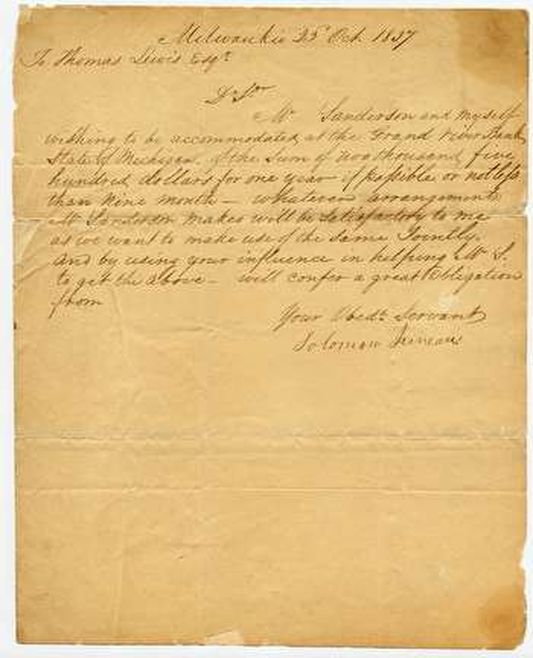 Milwaukie 25 Oct. 1837
To Thomas Lewis Esqr
Dr Sir
Mr Sanderson and myself
wishing to be accommodated at the Grand River Bank
State of Michigan, of the Sum of two thousand five
hundred dollars for one year if possible or not less
than Nine month – whatever arrangements
Mr Sanderson makes will be satisfactory to me
as we want to make use of the same Jointly
and by using your influence in helping Mr S.
to get the above – will confer a great Obligation
from
Your Obedt Servant
Solomon Juneau